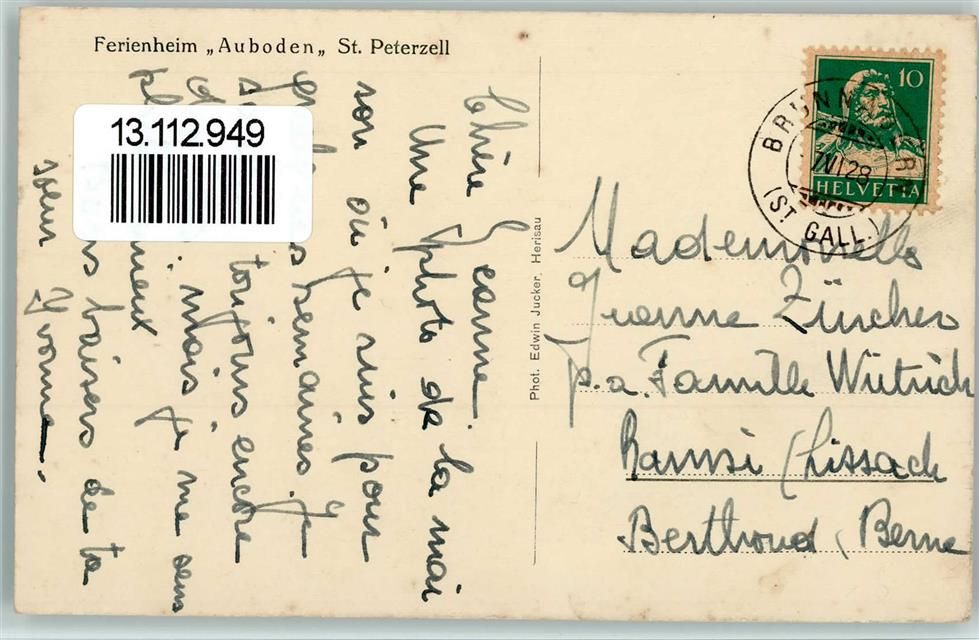 Ferienheim „Auboden„ St. Peterzell
13.112.949
Chère Jeanne.
Une photo de la mai
son où je suis pour
semaines. Je
toujours encore
mais je me sens
mieux
baisers de ta
soeur Yvonne.
Phot. Edwin Jucker, Herisau
10
HELVETIA
BRUNNADERN
(ST. GALL.)
7.VI.28
Mademoiselle
Jeanne Zürcher
p.a. Famille Wütrich
Ramsi (Lissach
Berthoud, Berne